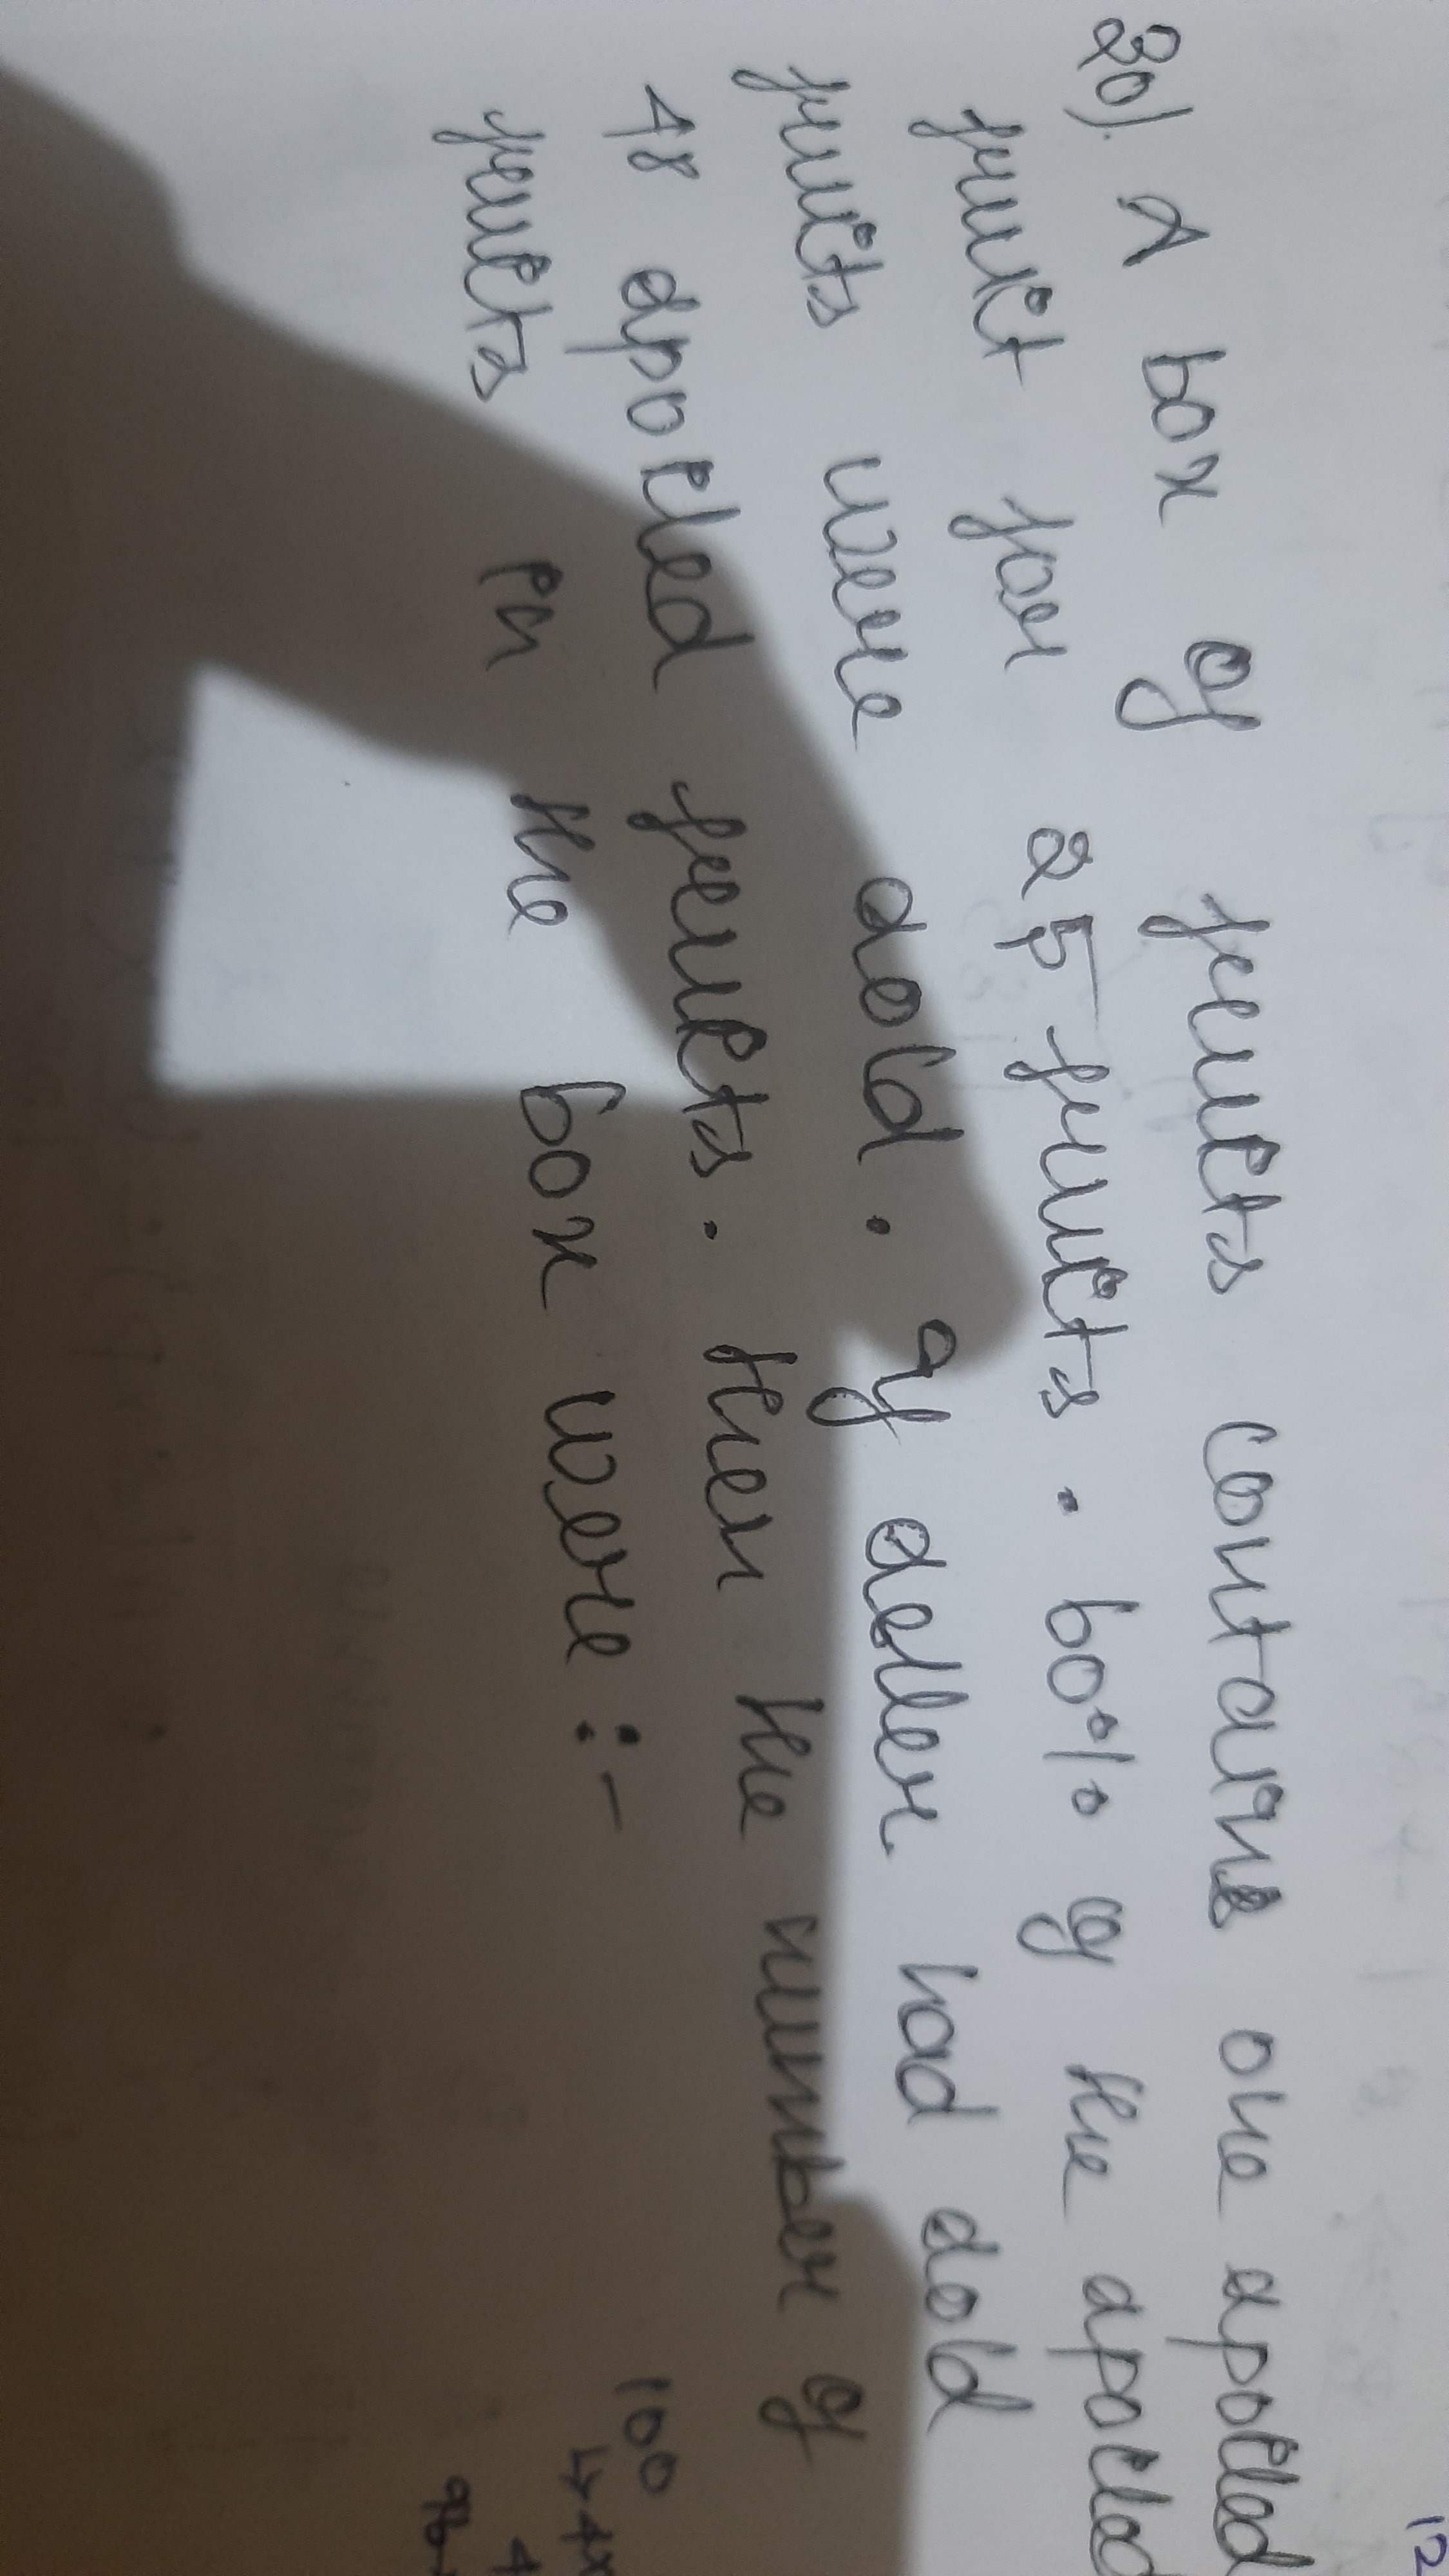 20). A box of fruits contains one spoiled
fruit for 25 fruits. 60% of the spoiled
fruits were sold. If seller had sold
48 spoiled fruits. then the number of
fruits in the box were :-
100
12